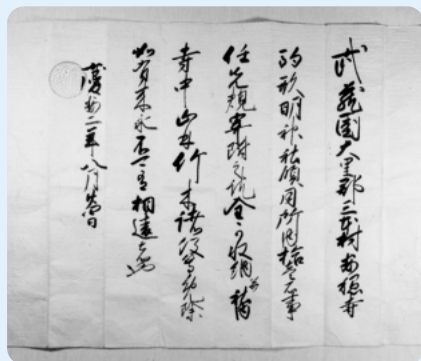 武蔵国大里郡三本村安穏寺
駒形明神社領同所内拾壱石事
任先規寄附之訖全可収納并
寺中山林竹木諸役等免除
如有来永不可有相違者也
慶安二年八月廿四日